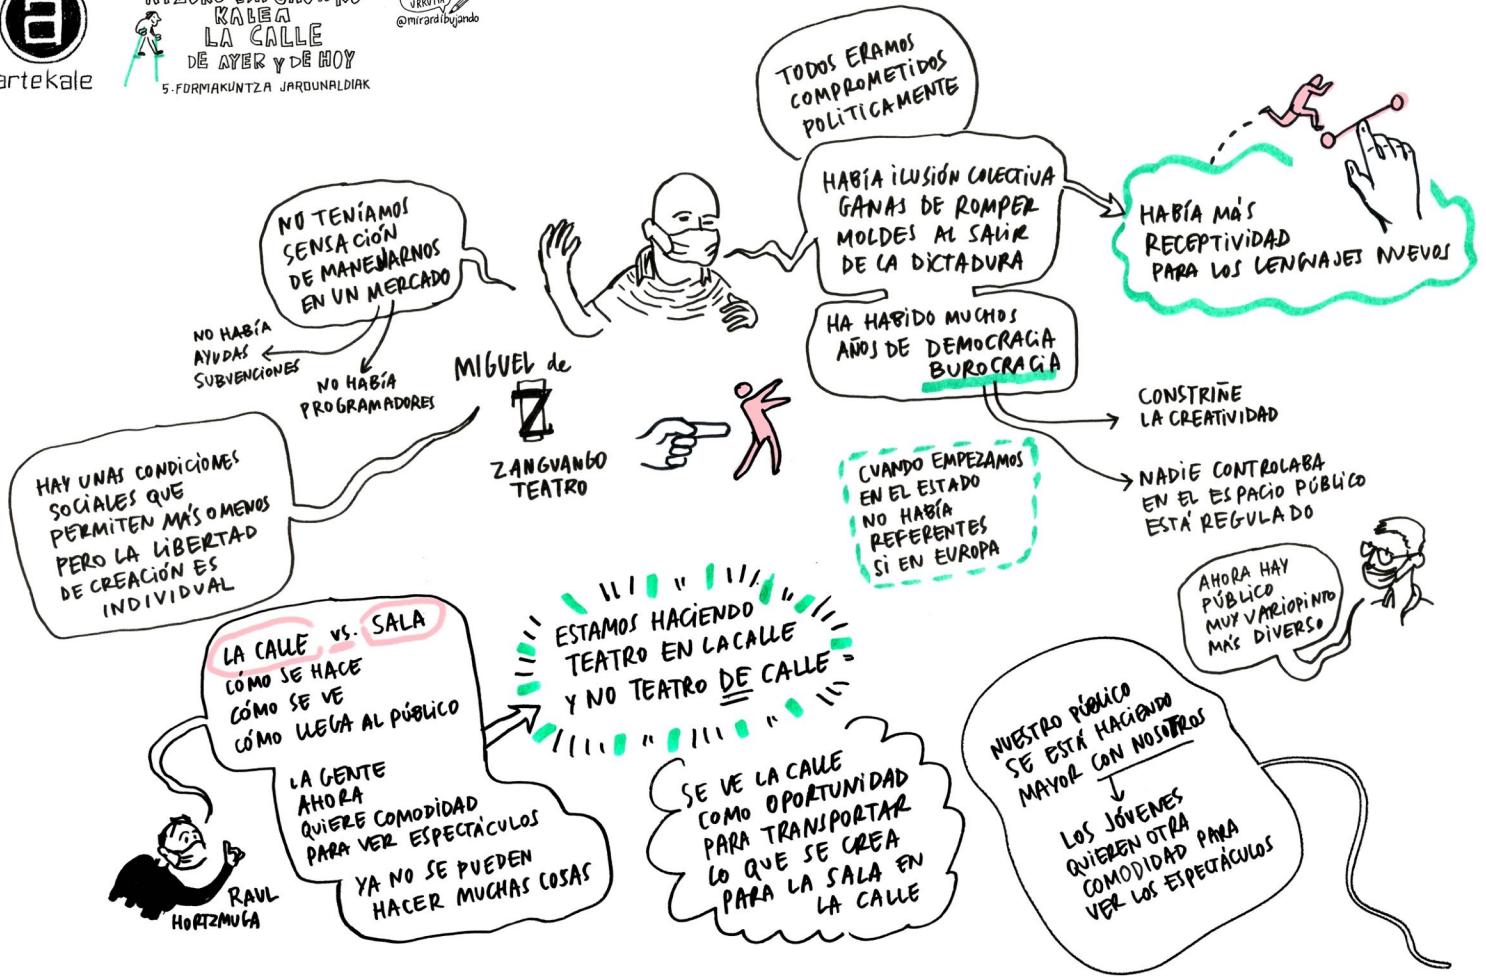 a
artekale
KALEA
LA CALLE
DE AYER Y DE HOY
5. FORMAKUNTZA JARDUNALDIAK
@mirardibujando
TODOS ERAMOS
COMPROMETIDOS
POLÍTICAMENTE
HABÍA ILUSIÓN COLECTIVA
GANAS DE ROMPER
MOLDES AL SALIR
DE LA DICTADURA
HABÍA MÁS
RECEPTIVIDAD
PARA LOS LENGUAJES NUEVOS
NO TENÍAMOS
SENSACIÓN
DE MANEJARNOS
EN UN MERCADO
NO HABÍA
AYUDAS
SUBVENCIONES
NO HABÍA
PROGRAMADORES
HA HABIDO MUCHOS
AÑOS DE DEMOCRACIA
BUROCRACIA
CONSTRIÑE
LA CREATIVIDAD
NADIE CONTROLABA
EN EL ESPACIO PÚBLICO
ESTÁ REGULADO
MIGUEL de
Z
ZANGUANGO
TEATRO
HAY UNAS CONDICIONES
SOCIALES QUE
PERMITEN MÁS O MENOS
PERO LA LIBERTAD
DE CREACIÓN ES
INDIVIDUAL
CUANDO EMPEZAMOS
EN EL ESTADO
NO HABÍA
REFERENTES
SI EN EUROPA
AHORA HAY
PÚBLICO
MUY VARIOPINTO
MÁS DIVERSO
LA CALLE vs. SALA
CÓMO SE HACE
CÓMO SE VE
CÓMO LLEGA AL PÚBLICO
LA GENTE
AHORA
QUIERE COMODIDAD
PARA VER ESPECTÁCULOS
YA NO SE PUEDEN
HACER MUCHAS COSAS
RAUL
HORTZMUGA
ESTAMOS HACIENDO
TEATRO EN LA CALLE
Y NO TEATRO DE CALLE
SE VE LA CALLE
COMO OPORTUNIDAD
PARA TRANSPORTAR
LO QUE SE CREA
PARA LA SALA EN
LA CALLE
NUESTRO PÚBLICO
SE ESTÁ HACIENDO
MAYOR CON NOSOTROS
LOS JÓVENES
QUIEREN OTRA
COMODIDAD PARA
VER LOS ESPECTÁCULOS